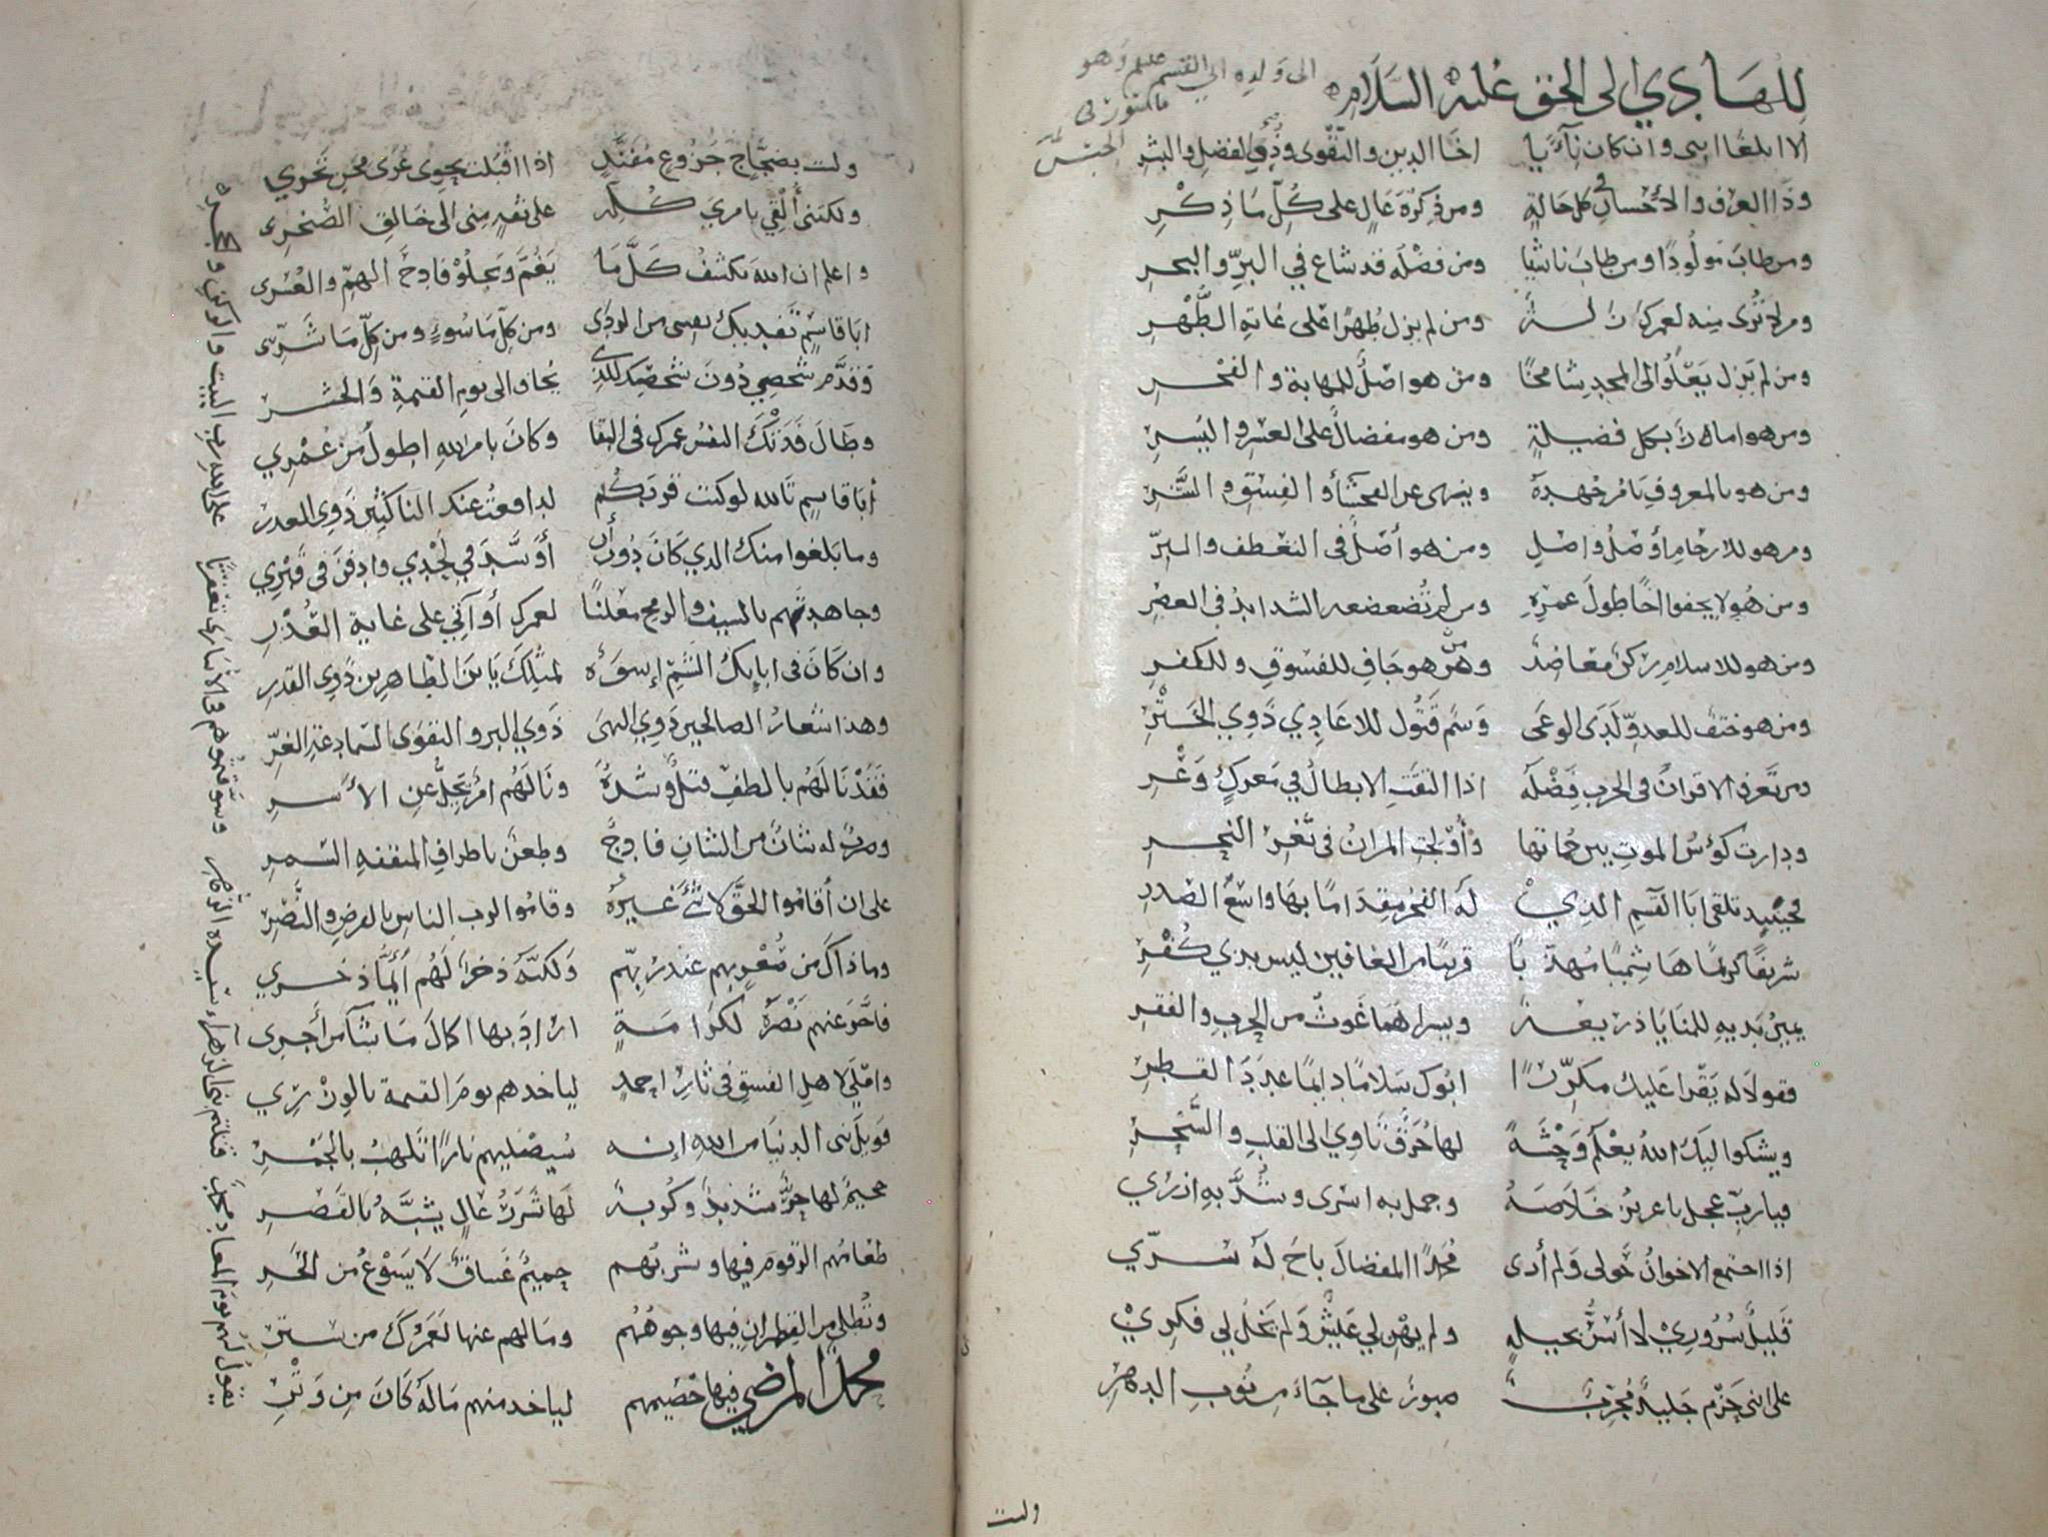 للهادي الى الحق عليه السلام
الى ولده ابي القسم عليهم وهو
ماسور في
الحبس
الا ابلغا ابني وان كان نآئيا اخا الدين والتقوى وذي الفضل والبشر
وذا العرف والاحسان في كل حالة ومن ذكره عال على كل ما ذكر
ومن طاب مولودا ومن طاب ناشيا ومن فضله قد شاع في البر والبحر
ومن لم ترى منه لعمرك زلة ومن لم يزل طهرا على غاية الطهر
ومن لم يزل يعلوا الى المجد شامخا ومن هو اصل للمهابة والفخر
ومن هو امار بكل فضيلة ومن هو مفضال على العسر واليسر
ومن هو بالمعروف يامر جهده وينهى عن الفحشآء والفسق والشر
ومن هو للارحام اوصل واصل ومن هو أصل في التعطف والبر
ومن هو لا يجفوا اخا طول عمره ومن لم تضعضعه الشدايد في العصر
ومن هو للاسلام ركن معاضد ومن هو جاف للفسوق وللكفر
ومن هو حتف للعدو لدى الوغى وسم قتول للاعادي ذوي الختر
ومن تعرف الاقران في الحرب فضله اذا التقت الابطال في معرك وعر
ودارت كؤس الموت بين حماتها وأولجت المران في ثغر النحر
فحينيذ تلقى ابا القسم الذي له الفخر مقداما بها واسع الصدر
شريفا كريما هاشميا مهذبا قريبا من العافين ليس بذي كفر
يمين يديه للمنايا ذريعة ويسراهما غوث من الحرب والفقر
فقولا له يقرا عليك مكررا ابوك سلاما دايما عدد القطر
ويشكوا اليك الله يعلم وحشة لها حرق تاوي الى القلب والسحر
فيارب عجل يا عزيز خلاصه وجمل به اسرى وشد به ازري
اذا اجتمع الاخوان حولى ولم أرى محمدا المفضال باح له سري
قليل سروري لا أسر بحيلة ولم يهن لي عيش ولم يخل لي فكري
على انني حزم جليد مجرب صبور على ما جآء من نوب الدهر
ولست
ولست بضجاج جزوع مفند اذا اقبلت نحوى عرى محن تجري
ولكنني ألقي بامري كله على ثقه مني الى خالق الصخر
واعلم ان الله يكشف كل ما يغم ويجلو فادح الهم والعسر
ابا قاسم تفديك نفسى من الردى ومن كل ما سوء ومن كل ما شر
وقدم شخصي دون شخصك للذي يخاف الى يوم القيمة والحشر
وطال فدتك النفس عمرك في البقا وكان بامر الله اطول من عمري
أبا قاسم تالله لو كنت قربكم لدافعت عنك الناكثين ذوى الغدر
وما بلغوا منك الذي كان دون أن أوسد في لحدي وادفن في قبري
وجاهدتهم بالسيف والرمح معلنا لعمرك أو آتي على غاية العذر
وان كان في ابايك الشم إسوة لمثلك يابن الطاهرين ذوي القدر
وهذا شعار الصالحين ذوي النهى ذوي البر والتقوى السمادعة الغر
فقد نالهم بالطف قتل وشدة ونالهم امر يجل عن الاسر
وضرب له شان من الشان فادح وطعن باطراف المثقفه السمر
على ان أقاموا الحق لا شئ غيره وقاموا لرب الناس بالفرض والنصر
وما ذاك من هم عند ربهم ولكنه ذخر لهم أيما ذخري
فاخر عنهم نصره لكرامة اراد بها اكمال ما شآ من أجرى
واملى لاهل الفسق في ثار احمد لياخذهم يوم القيمة بالوزري
فويل بني الدنيا من الله إنه سيصليهم نارا تلهب بالجمر
جحيم لها حر شديد وكربة لها شرر عال يشبه بالقصر
طعامهم الزقوم فيها وشربهم حميم غساق لا يسوغ من الحر
وتطلى من القطران فيها وجوههم وما لهم عنها لعمرك من ستر
محمد المرضي فيها خصيمهم لياخذ منهم ماله كان من وتر
يقول لهم يوم المعاد قتلتم بنى الزهراء